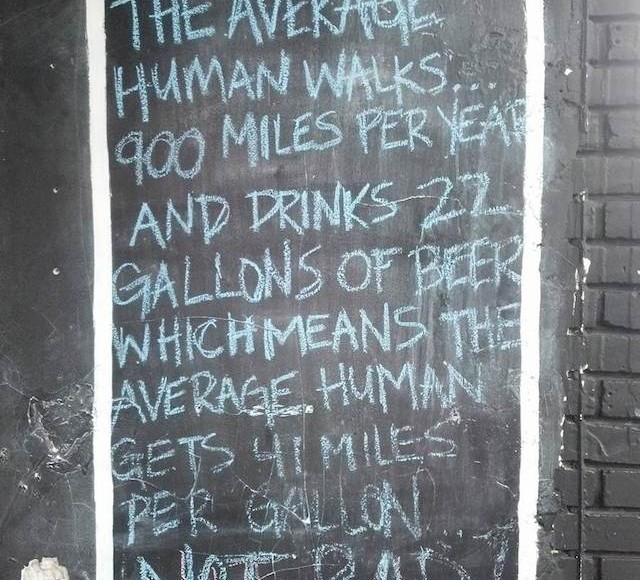 THE AVERAGE
HUMAN WALKS...
900 MILES PER YEAR
AND DRINKS 22
GALLONS OF BEER
WHICH MEANS THE
AVERAGE HUMAN
GETS 41 MILES
PER GALLON
NOT BAD!